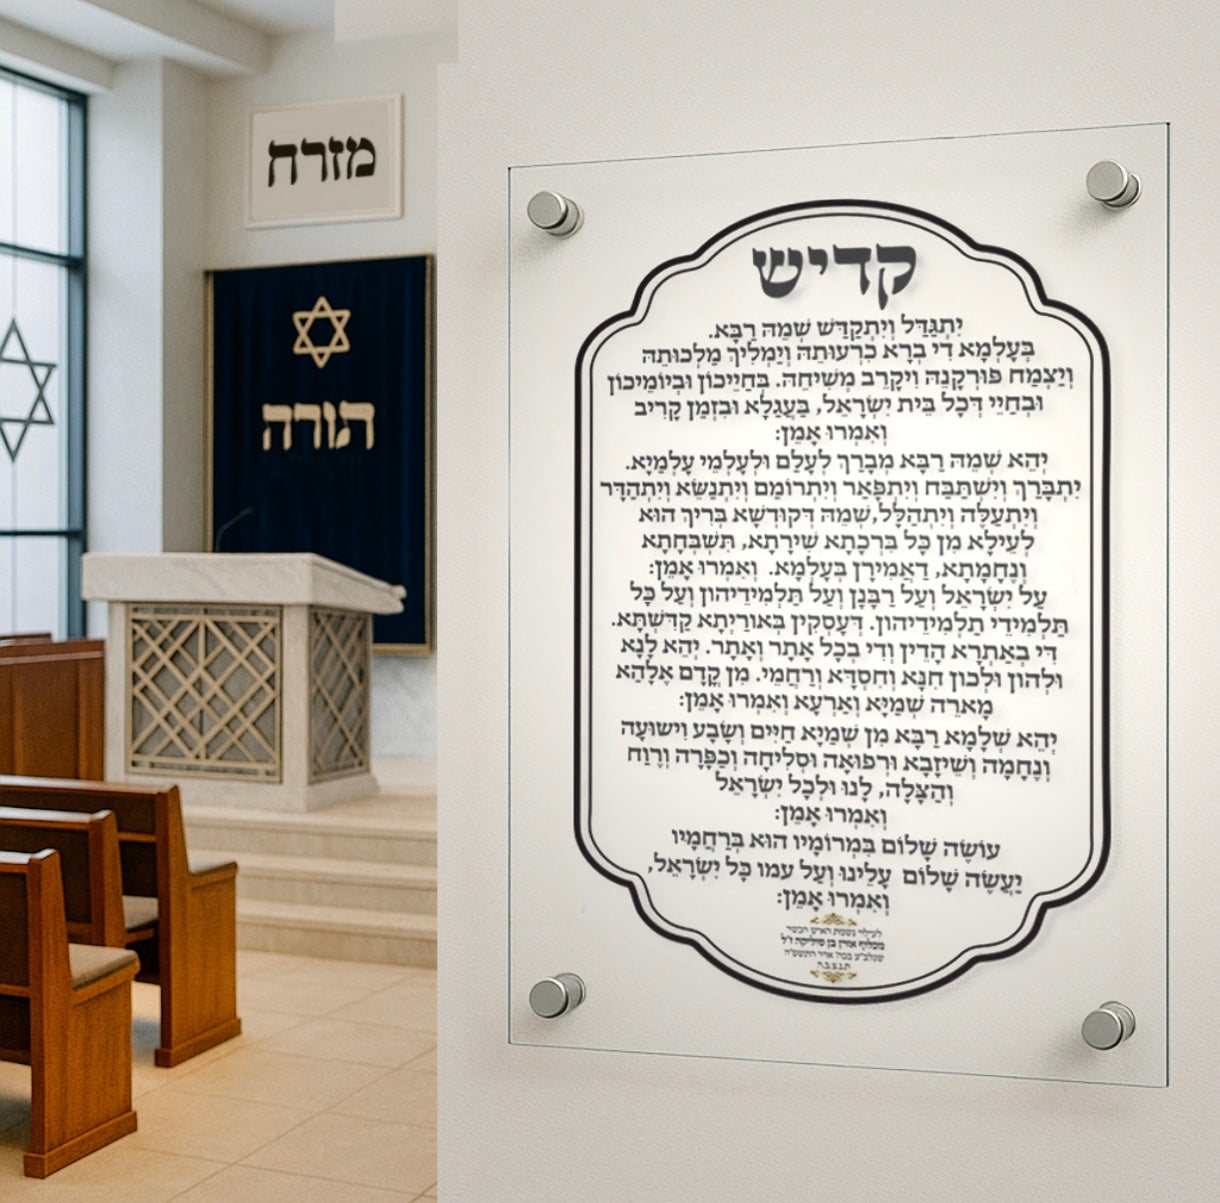 מזרח
תורה
קדיש
יִתְגַּדַּל וְיִתְקַדַּשׁ שְׁמֵהּ רַבָּא.
בְּעָלְמָא דִּי בְרָא כִרְעוּתֵהּ וְיַמְלִיךְ מַלְכוּתֵהּ
וְיַצְמַח פּוּרְקָנֵהּ וִיקָרֵב מְשִׁיחֵהּ. בְּחַיֵּיכוֹן וּבְיוֹמֵיכוֹן
וּבְחַיֵּי דְכָל בֵּית יִשְׂרָאֵל, בַּעֲגָלָא וּבִזְמַן קָרִיב
וְאִמְרוּ אָמֵן:
יְהֵא שְׁמֵהּ רַבָּא מְבָרַךְ לְעָלַם וּלְעָלְמֵי עָלְמַיָּא.
יִתְבָּרַךְ וְיִשְׁתַּבַּח וְיִתְפָּאַר וְיִתְרוֹמַם וְיִתְנַשֵּׂא וְיִתְהַדָּר
וְיִתְעַלֶּה וְיִתְהַלָּל,שְׁמֵהּ דְּקוּדְשָׁא בְּרִיךְ הוּא
לְעֵילָא מִן כָּל בִּרְכָתָא שִׁירָתָא, תִּשְׁבְּחָתָא
וְנֶחָמָתָא, דַּאֲמִירָן בְּעָלְמָא. וְאִמְרוּ אָמֵן:
עַל יִשְׂרָאֵל וְעַל רַבָּנָן וְעַל תַּלְמִידֵיהוֹן וְעַל כָּל
תַּלְמִידֵי תַלְמִידֵיהוֹן. דְּעָסְקִין בְּאוֹרַיְתָא קַדִּשְׁתָּא.
דִּי בְאַתְרָא הָדֵין וְדִי בְכָל אֲתַר וַאֲתַר. יְהֵא לָנָא
וּלְהוֹן וּלְכוֹן חִנָּא וְחִסְדָּא וְרַחֲמֵי. מִן קֳדָם אֱלָהָא
מָארֵה שְׁמַיָּא וְאַרְעָא וְאִמְרוּ אָמֵן:
יְהֵא שְׁלָמָא רַבָּא מִן שְׁמַיָּא חַיִּים וְשָׂבָע וִישׁוּעָה
וְנֶחָמָה וְשֵׁיזָבָא וּרְפוּאָה וּסְלִיחָה וְכַפָּרָה וְרֶוַח
וְהַצָּלָה, לָנוּ וּלְכָל יִשְׂרָאֵל
וְאִמְרוּ אָמֵן:
עוֹשֶׂה שָׁלוֹם בִּמְרוֹמָיו הוּא בְּרַחֲמָיו
יַעֲשֶׂה שָׁלוֹם עָלֵינוּ וְעַל עמו כָּל יִשְׂרָאֵל,
וְאִמְרוּ אָמֵן:
לעילוי נשמת האיש הכשר
מכלוף אורן בן סוליקה ז"ל
שנלב"ע בכה' אדר התשע"ה
ת.נ.צ.ב.ה